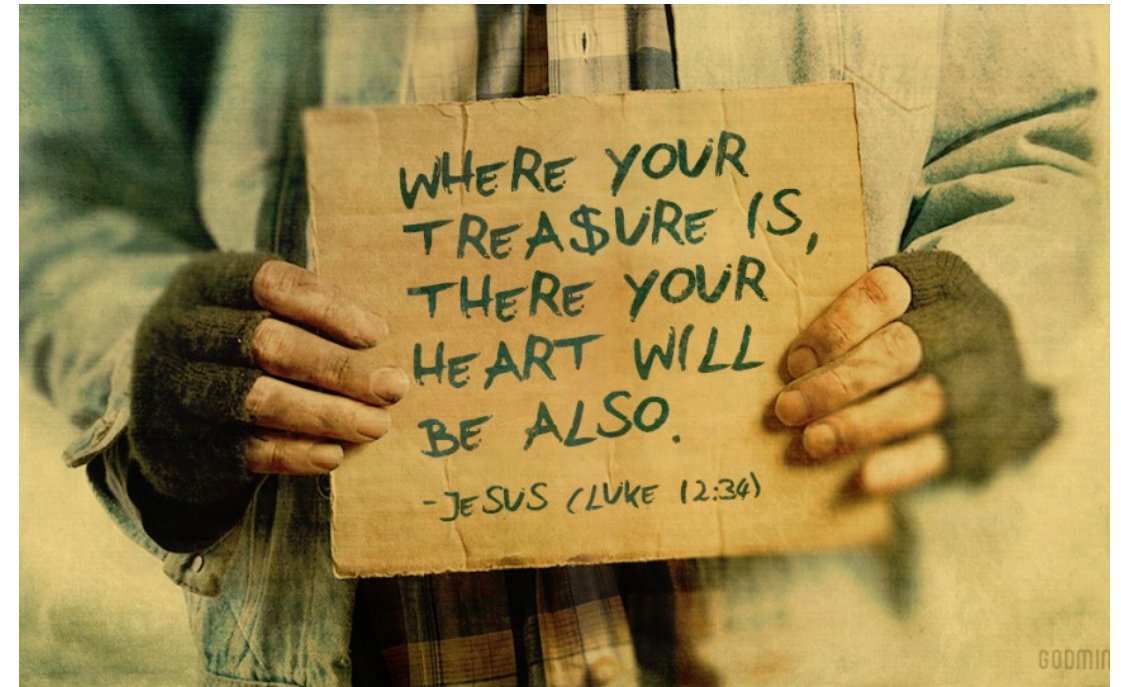 WHERE YOUR
TREA$URE IS,
THERE YOUR
HEART WILL
BE ALSO.
-JESUS (LUKE 12:34)
GODMIN